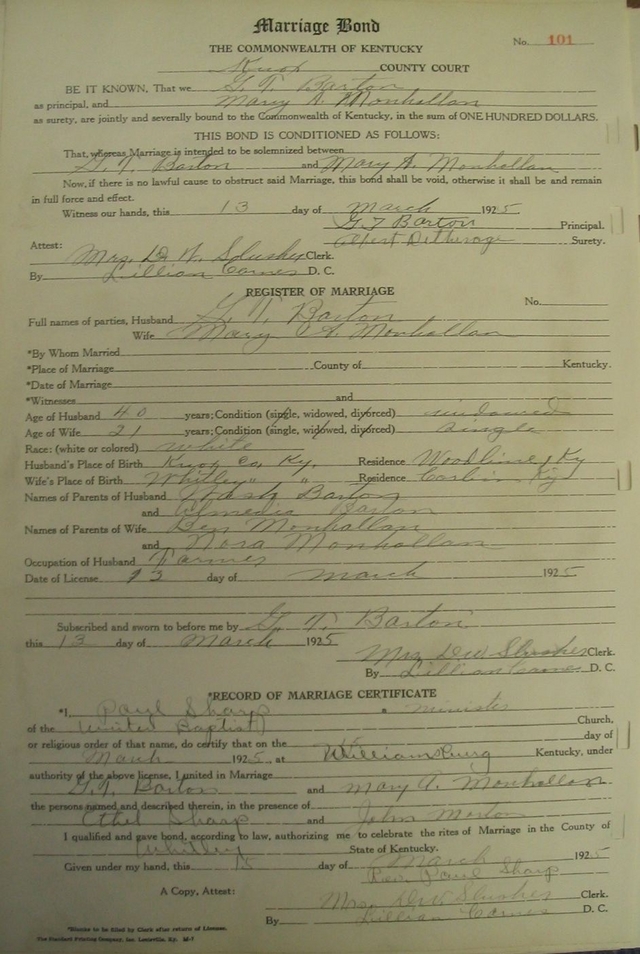 Marriage Bond
THE COMMONWEALTH OF KENTUCKY
No. 101
Knox COUNTY COURT
BE IT KNOWN, That we G. T. Barton
as principal, and Mary A. Monhollan
as surety, are jointly and severally bound to the Commonwealth of Kentucky, in the sum of ONE HUNDRED DOLLARS.
THIS BOND IS CONDITIONED AS FOLLOWS:
That, whereas Marriage is intended to be solemnized between
G. T. Barton and Mary A. Monhollan
Now, if there is no lawful cause to obstruct said Marriage, this bond shall be void, otherwise it shall be and remain
in full force and effect.
Witness our hands, this 13 day of March 1925
G T Barton Principal.
Albert Surety.
Attest:
Mrs. D. W. Slusher Clerk.
By Lillian Carnes D. C.
REGISTER OF MARRIAGE
No.
Full names of parties, Husband G. T. Barton
Wife Mary A. Monhollan
*By Whom Married
*Place of Marriage County of Kentucky.
*Date of Marriage
*Witnesses and
Age of Husband 40 years; Condition (single, widowed, divorced) widowed
Age of Wife 21 years; Condition (single, widowed, divorced) single
Race: (white or colored) white
Husband's Place of Birth Knox Co, Ky. Residence Woodbine, Ky
Wife's Place of Birth Whitley " " Residence Corbin Ky
Names of Parents of Husband Wash Barton
and Barton
Names of Parents of Wife Ben Monhollan
and Nora Monhollan
Occupation of Husband Farmer
Date of License 13 day of March 1925
Subscribed and sworn to before me by G. T. Barton
this 13 day of March 1925
Mrs D W Slusher Clerk.
By Lillian Carnes D. C.
*RECORD OF MARRIAGE CERTIFICATE
*I, Paul Sharp a minister
of the United Baptist Church,
or religious order of that name, do certify that on the 15 day of
March 1925 at Williamsburg Kentucky, under
authority of the above license, I united in Marriage
G. T. Barton and Mary A. Monhollan
the persons named and described therein, in the presence of
Ethel Sharp and John Morton
I qualified and gave bond, according to law, authorizing me to celebrate the rites of Marriage in the County of
Whitley State of Kentucky.
Given under my hand, this 15 day of March 1925
Rev. Paul Sharp
A Copy, Attest:
Mrs. D W Slusher Clerk.
By Lillian Carnes D. C.
*Blanks to be filled by Clerk after return of License.
The Standard Printing Company, Inc. Louisville, Ky. M-7